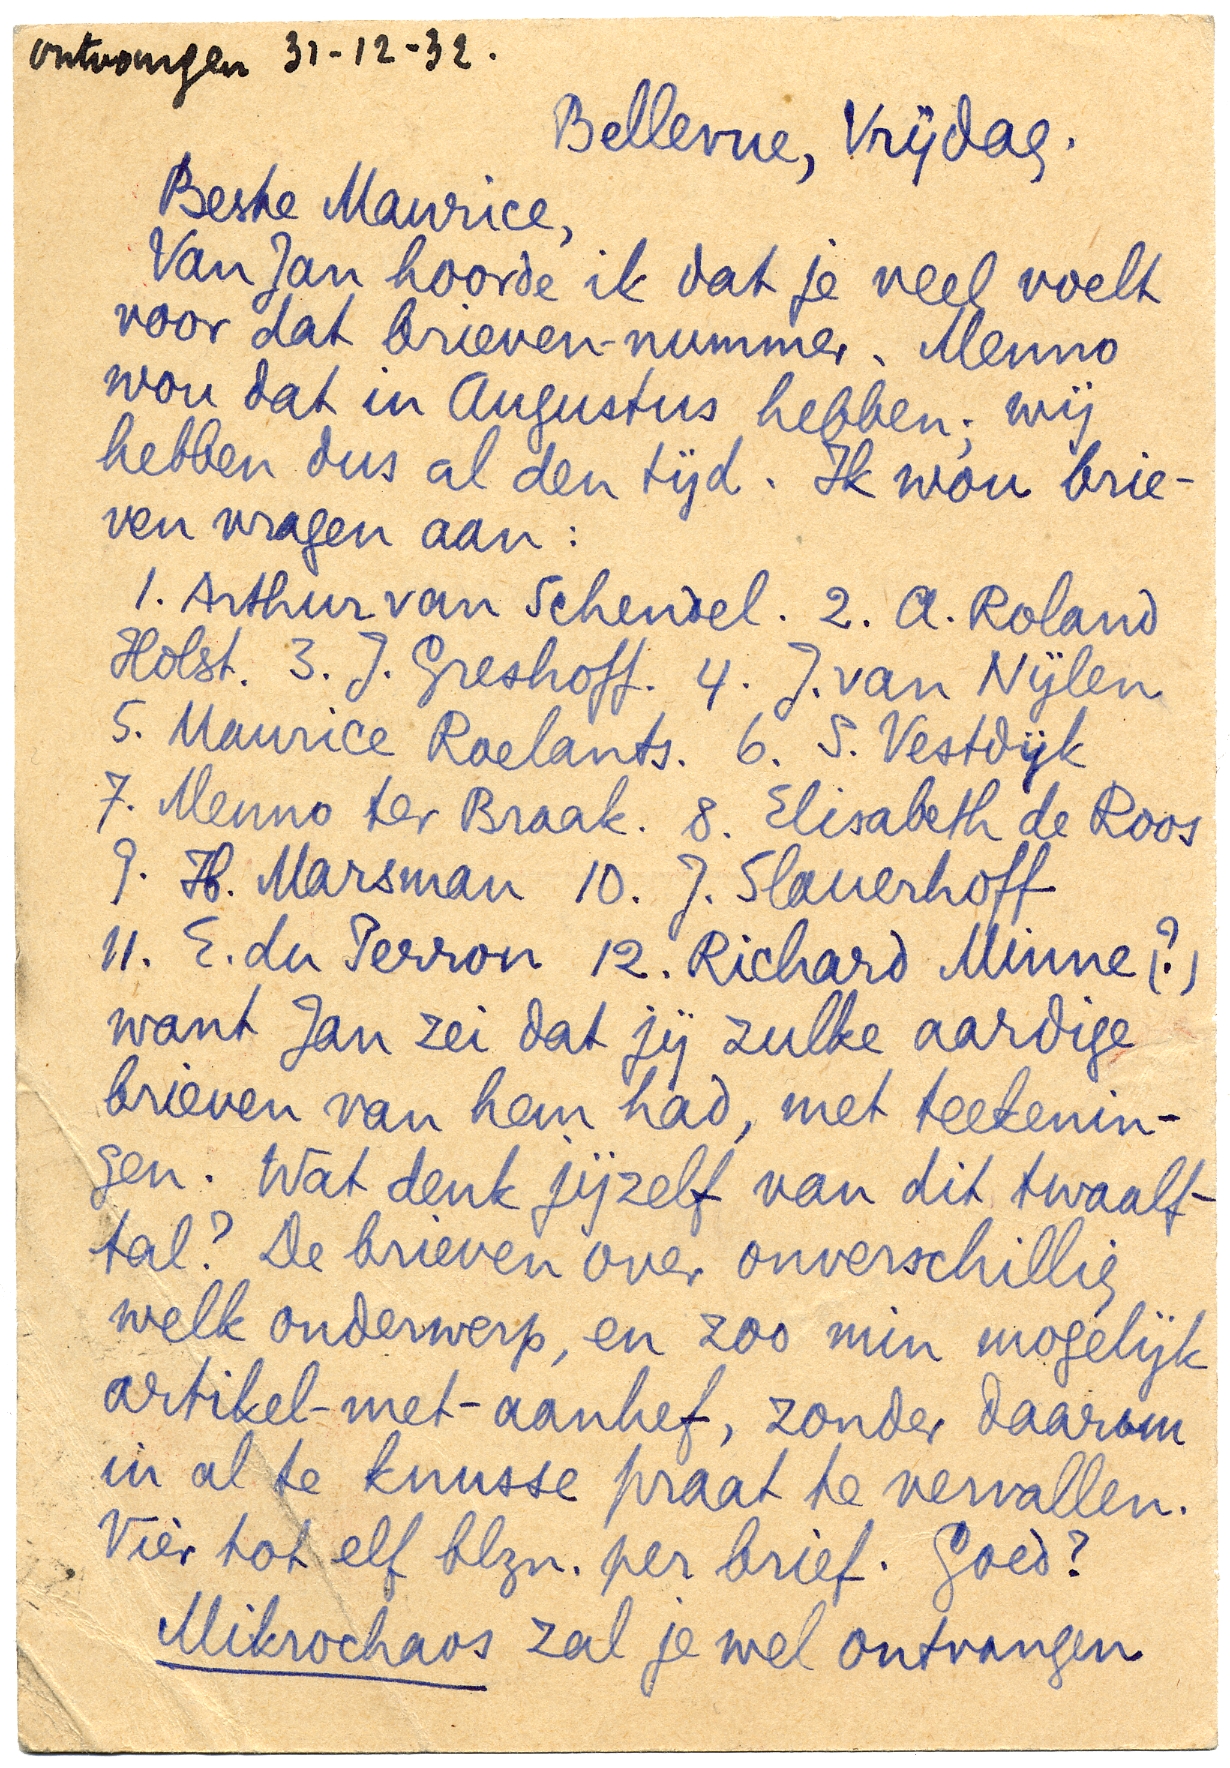 ontvangen 31-12-32.
Bellevue, Vrijdag.
Beste Maurice,
Van Jan hoorde ik dat je veel voelt
voor dat brieven-nummer. Menno
wou dat in Augustus hebben; wij
hebben dus al den tijd. Ik wou brie-
ven vragen aan:
1. Arthur van Schendel. 2. A. Roland
Holst. 3. J. Greshoff. 4. J. van Nijlen
5. Maurice Roelants. 6. S. Vestdijk
7. Menno ter Braak. 8. Elisabeth de Roos
9. H. Marsman 10. J. Slauerhoff
11. E. du Perron 12. Richard Minne (?)
want Jan zei dat jij zulke aardige
brieven van hem had, met teekenin-
gen. Wat denk jijzelf van dit twaalf-
tal? De brieven over onverschillig
welk onderwerp, en zoo min mogelijk
artikel-met-aanhef, zonder daarom
in al te knusse praat te vervallen.
Vier tot elf blzn. per brief. Goed?
Mikrochaos zal je wel ontvangen